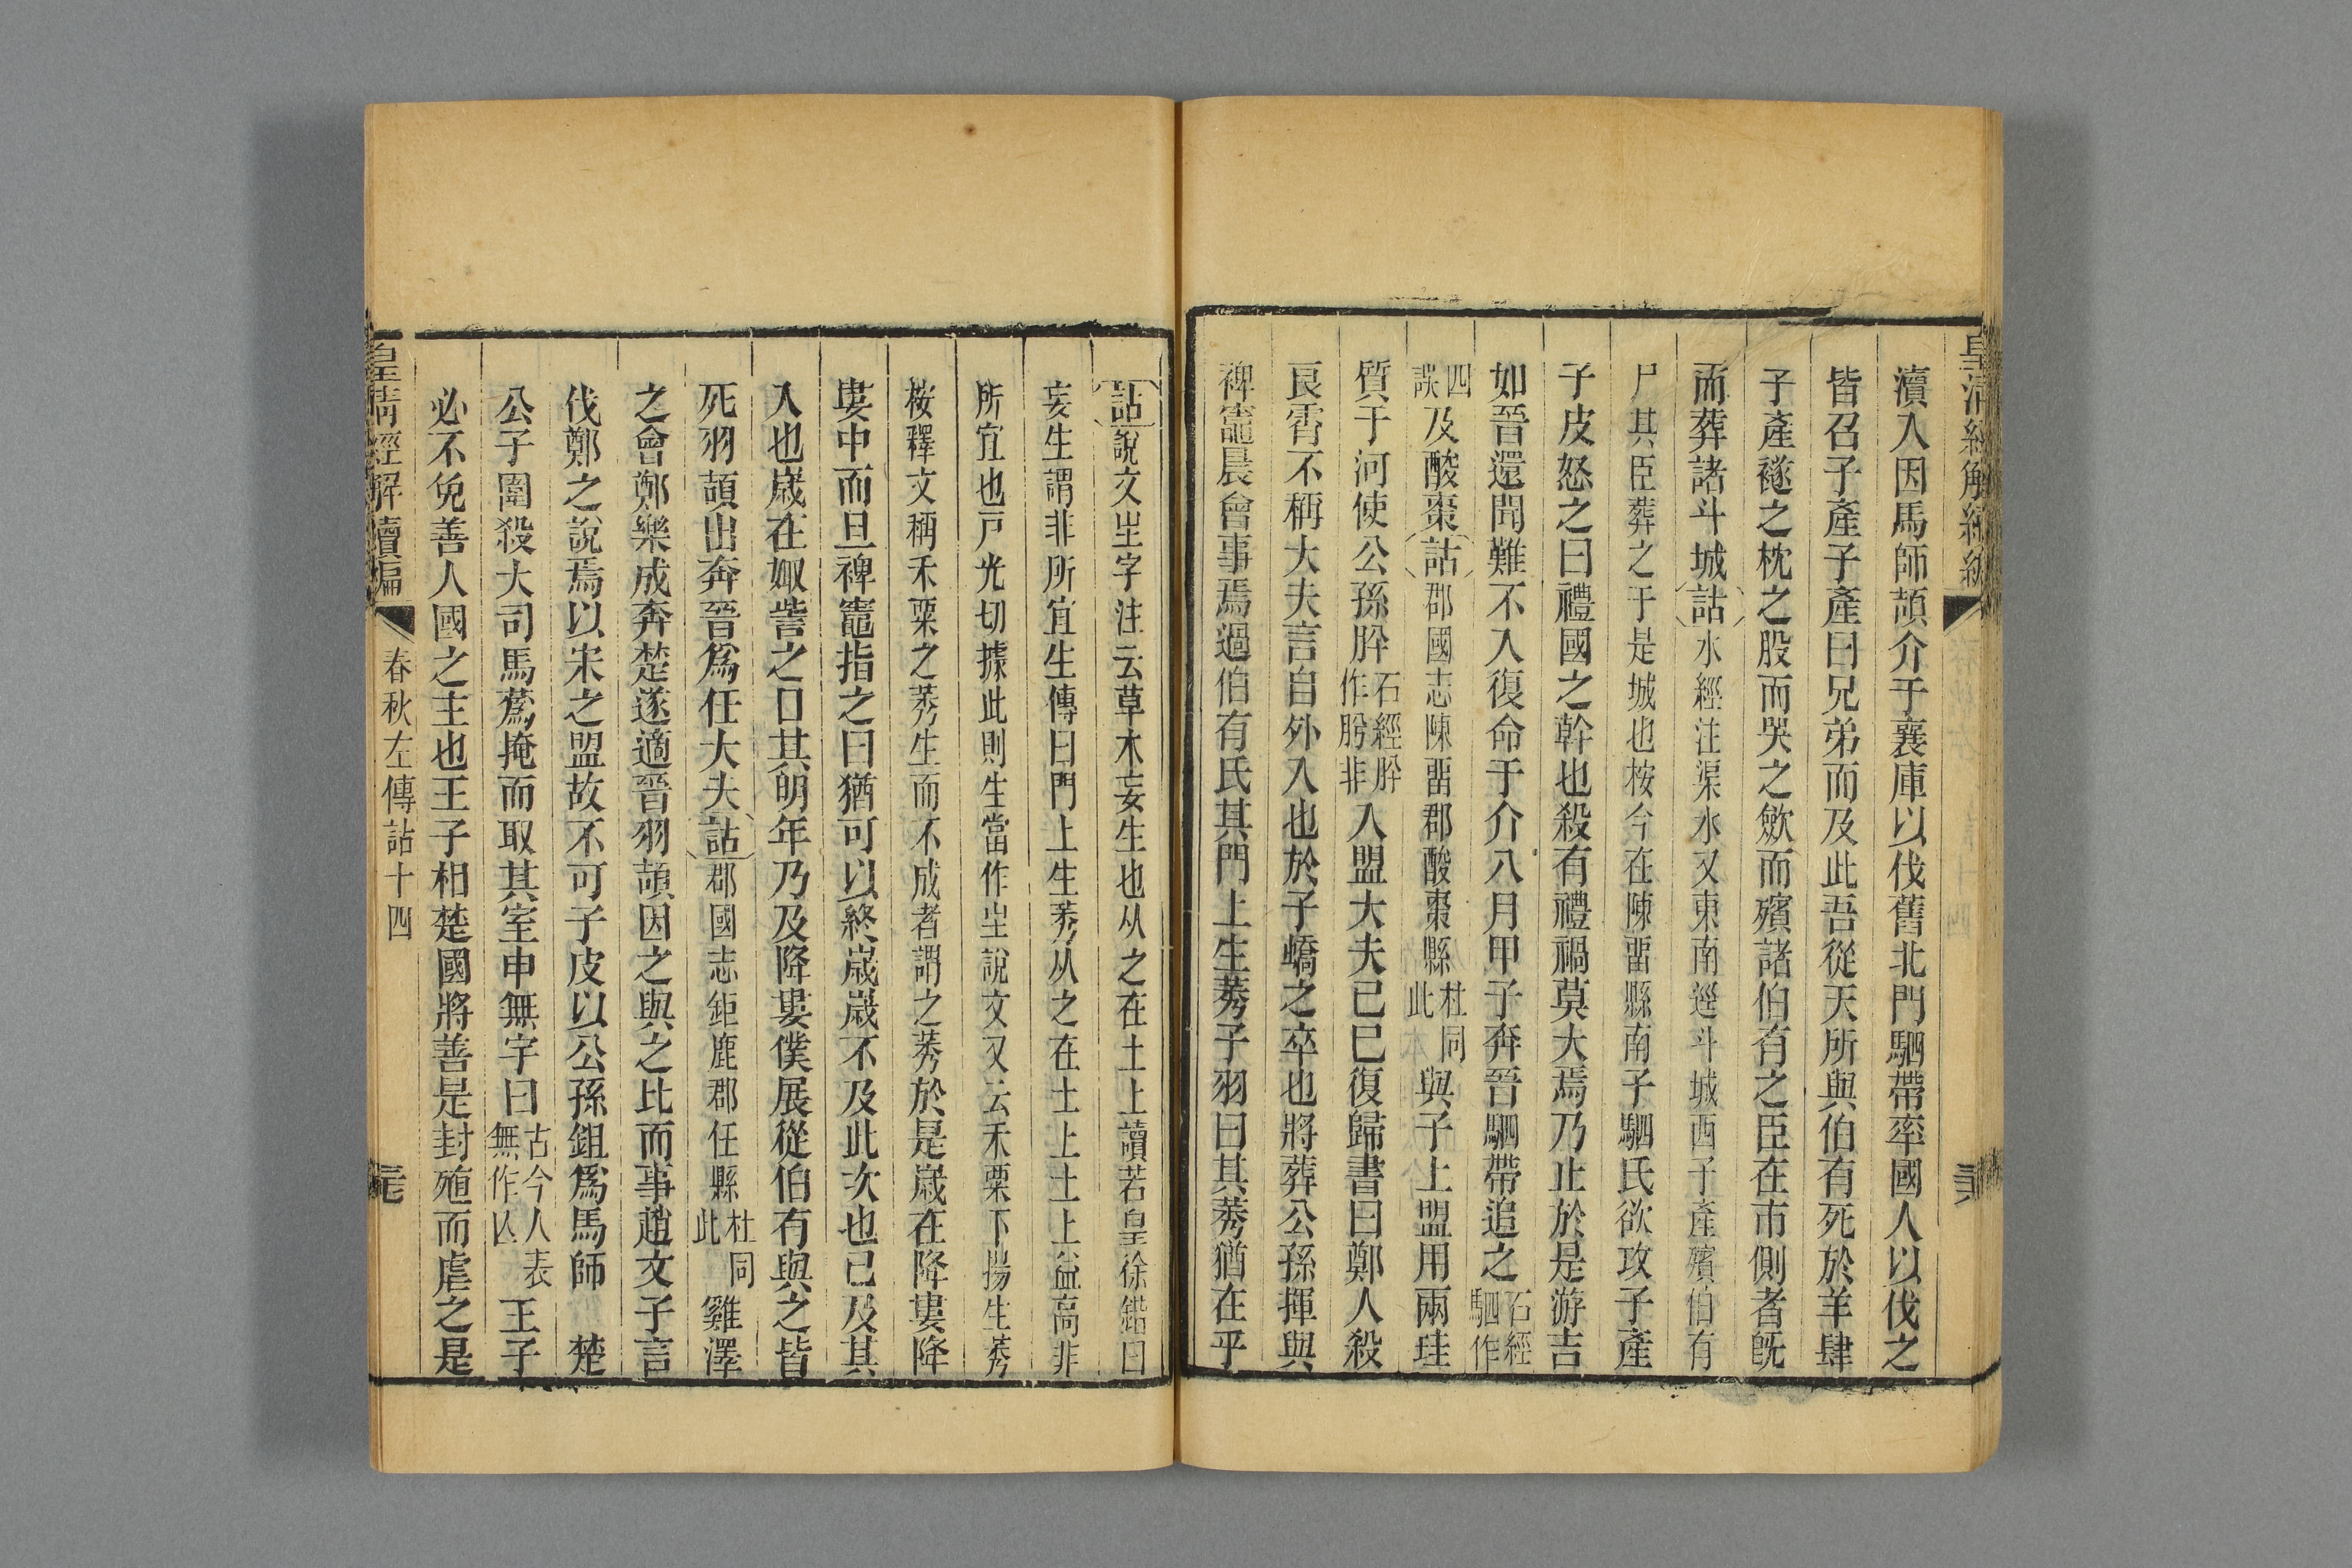 瀆入因馬師頡介于襄庫以伐舊北門駟帶率國人以伐之
皆召子產子產曰兄弟而及此吾從天所與伯有死於羊肆
子產襚之枕之股而哭之歛而殯諸伯有之臣在市側者旣
而葬諸斗城詁水經注渠水又東南逕斗城西子產殯伯有
尸其臣葬之于是城也桉今在陳畱縣南子駟氏欲攻子產
子皮怒之曰禮國之幹也殺有禮禍莫大焉乃止於是游吉
如晉還聞難不入復命于介八月甲子奔晉駟帶追之石經駟作
四誤及酸棗詁郡國志陳畱郡酸棗縣杜同此與子上盟用兩珪
質于河使公孫肸石經肸作肹非入盟大夫己巳復歸書曰鄭人殺
良霄不稱大夫言自外入也於子蟜之卒也將葬公孫揮與
裨竈晨會事焉過伯有氏其門上生莠子羽曰其莠猶在乎
詁說文㞷字注云草木妄生也从之在土上讀若皇徐鍇曰
妄生謂非所宜生傳曰門上生莠从之在土上土上益高非
所宜也戸光切據此則生當作㞷說文又云禾粟下揚生莠
桉釋文稱禾粟之莠生而不成者謂之莠於是歲在降婁降
婁中而旦裨竈指之曰猶可以終歲歲不及此次也已及其
入也歲在娵訾之口其明年乃及降婁僕展從伯有與之皆
死羽頡出奔晉爲任大夫詁郡國志鉅鹿郡任縣杜同此雞澤
之會鄭樂成奔楚遂適晉羽頡因之與之比而事趙文子言
伐鄭之說焉以宋之盟故不可子皮以公孫鉏爲馬師　楚
公子圍殺大司馬蒍掩而取其室申無宇曰古今人表無作亾王子
必不免善人國之主也王子相楚國將善是封殖而虐之是
皇清經解續編
春秋左傳詁十四